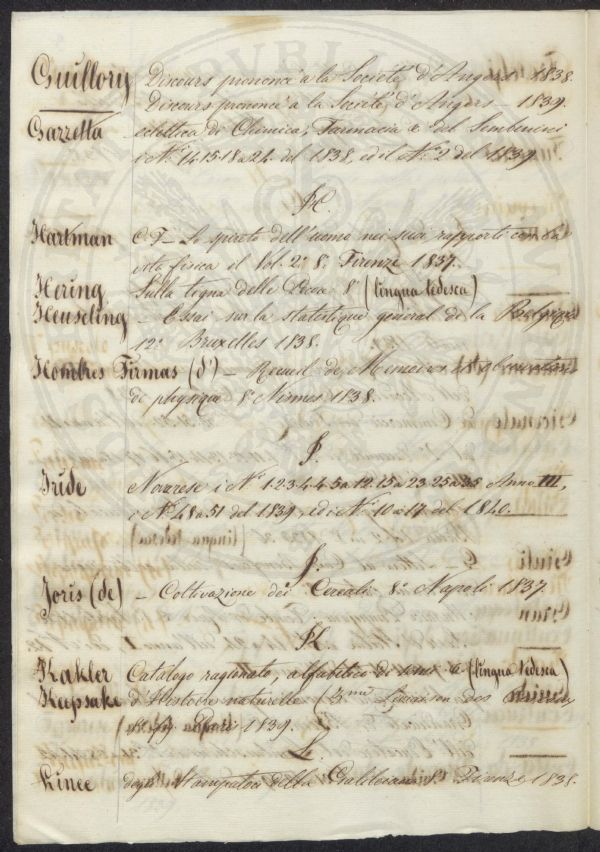 Guillory Discours prononcé a la Societé d'Angers 1838.
Discours prononcé a la Societé d'Angers – 1839.
Gazzetta eclettica di Chimica, Farmacia &. del Sembenini
i N.i 14.15.18 a 24. del 1838, ed il N.o 2 del 1839.
H.
Hartman C. F. – Lo spirito dell'uomo nei suoi rapporti con la
vita fisica il Vol. 2.o 8.o Firenze 1837.
Hering Sulla rogna delle 8.o (lingua tedesca)
Heuseling – Essai sur la statistique general de la Belgique
12.o Bruxelles 1838.
Hombres Firmas (d') – Recueil de Memoires
de physique 8.o Nismes 1838.
I.
Iride Novarese i N.i 1.2.3.4.4.5 a 12.15 a 23.25 a 35 Anno III,
i N.i 48 a 51 del 1839, ed i N.i 10 a 17 del 1840.
J.
Joris (de) – Coltivazione dei Cereali 8.o Napoli 1837.
K.
Kakler Catalogo ragionato, alfabetico di &. (lingua tedesca)
Keepsake d'Histoire naturelle (3.me Livraison des
1839.
L.
Lince degli Stampatori della 8.o Firenze 1838.